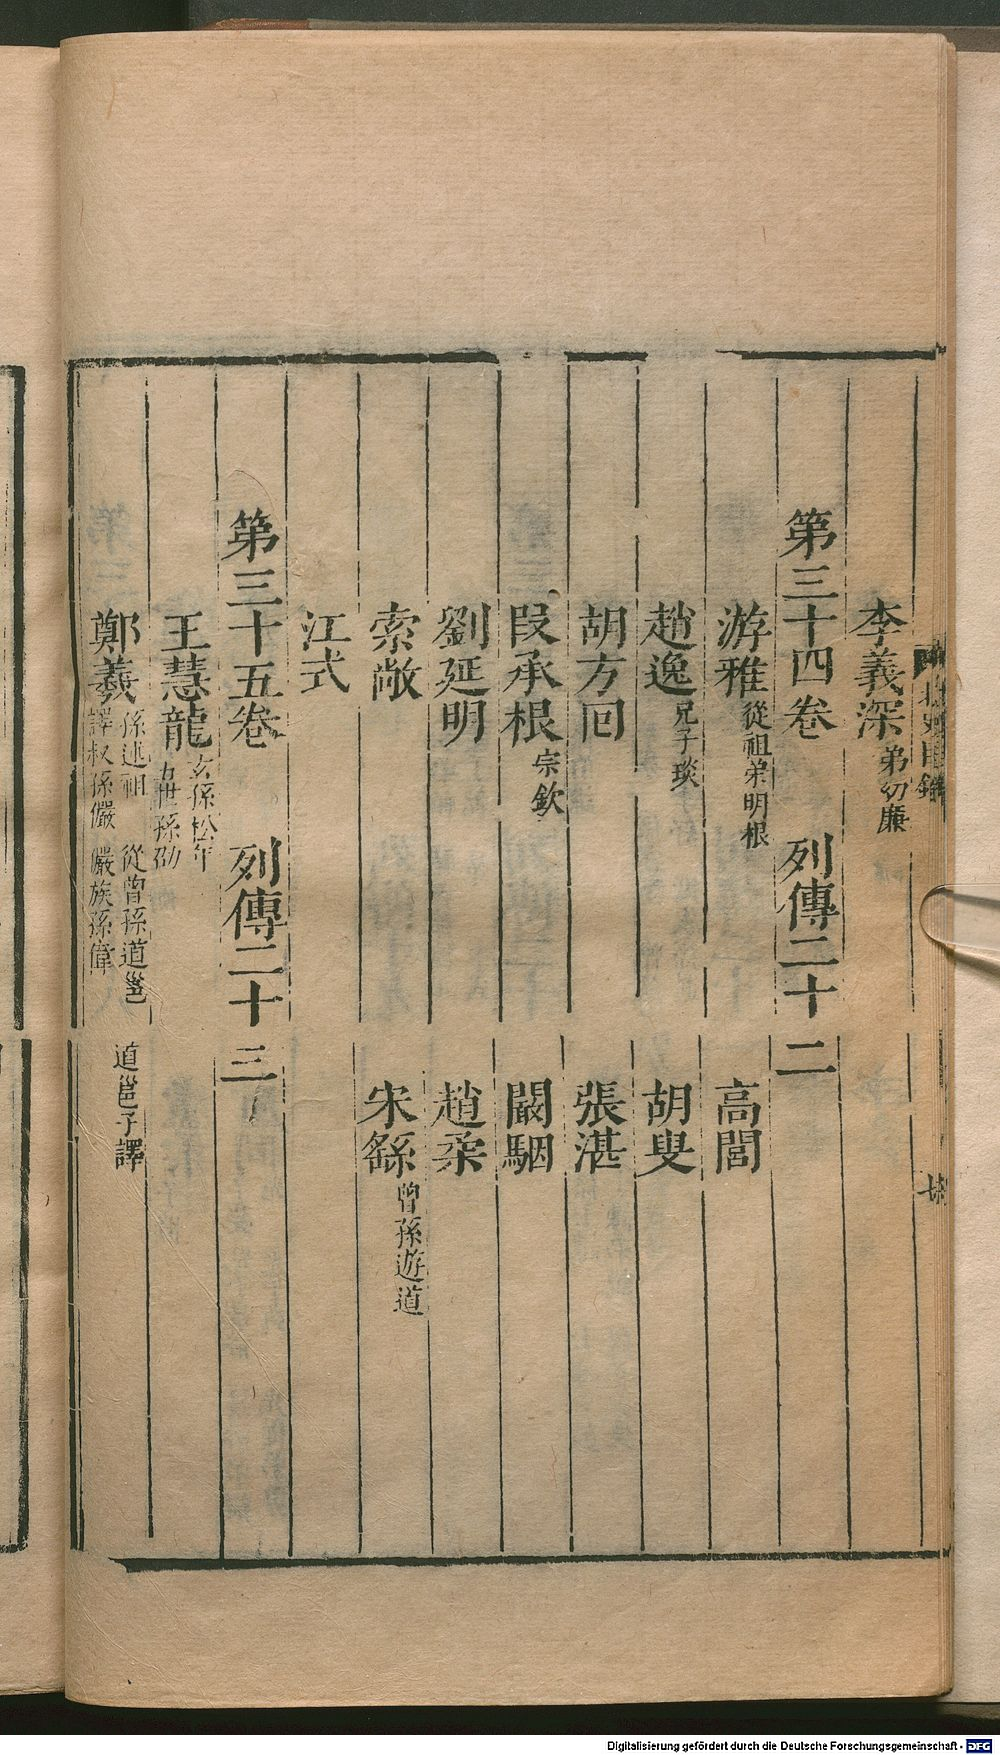 李義深弟幼廉
第三十四卷 列傳二十二
游雅從祖弟明根 高閭
趙逸兄子琰 胡叟
胡方回 張湛
段承根宗欽 闞駰
劉延明 趙柔
索敞 宋繇曾孫遊道
江式
第三十五卷 列傳二十三
王慧龍玄孫松年
五世孫劭
鄭羲孫述祖 從曾孫道邕 道邕子譯
譯叔孫儼 儼族孫偉
北史目錄
Digitalisierung gefördert durch die Deutsche Forschungsgemeinschaft - DFG